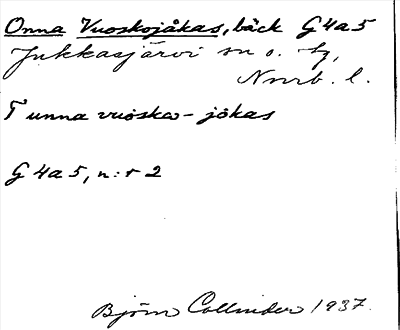 Onna Vuoskojåkas, bäck G4a5
Jukkasjärvi sn o. tg,
Norrb. l.
T unna vuoska-jåkas
G 4a5, n:r 2
Björn Collinder 1937.